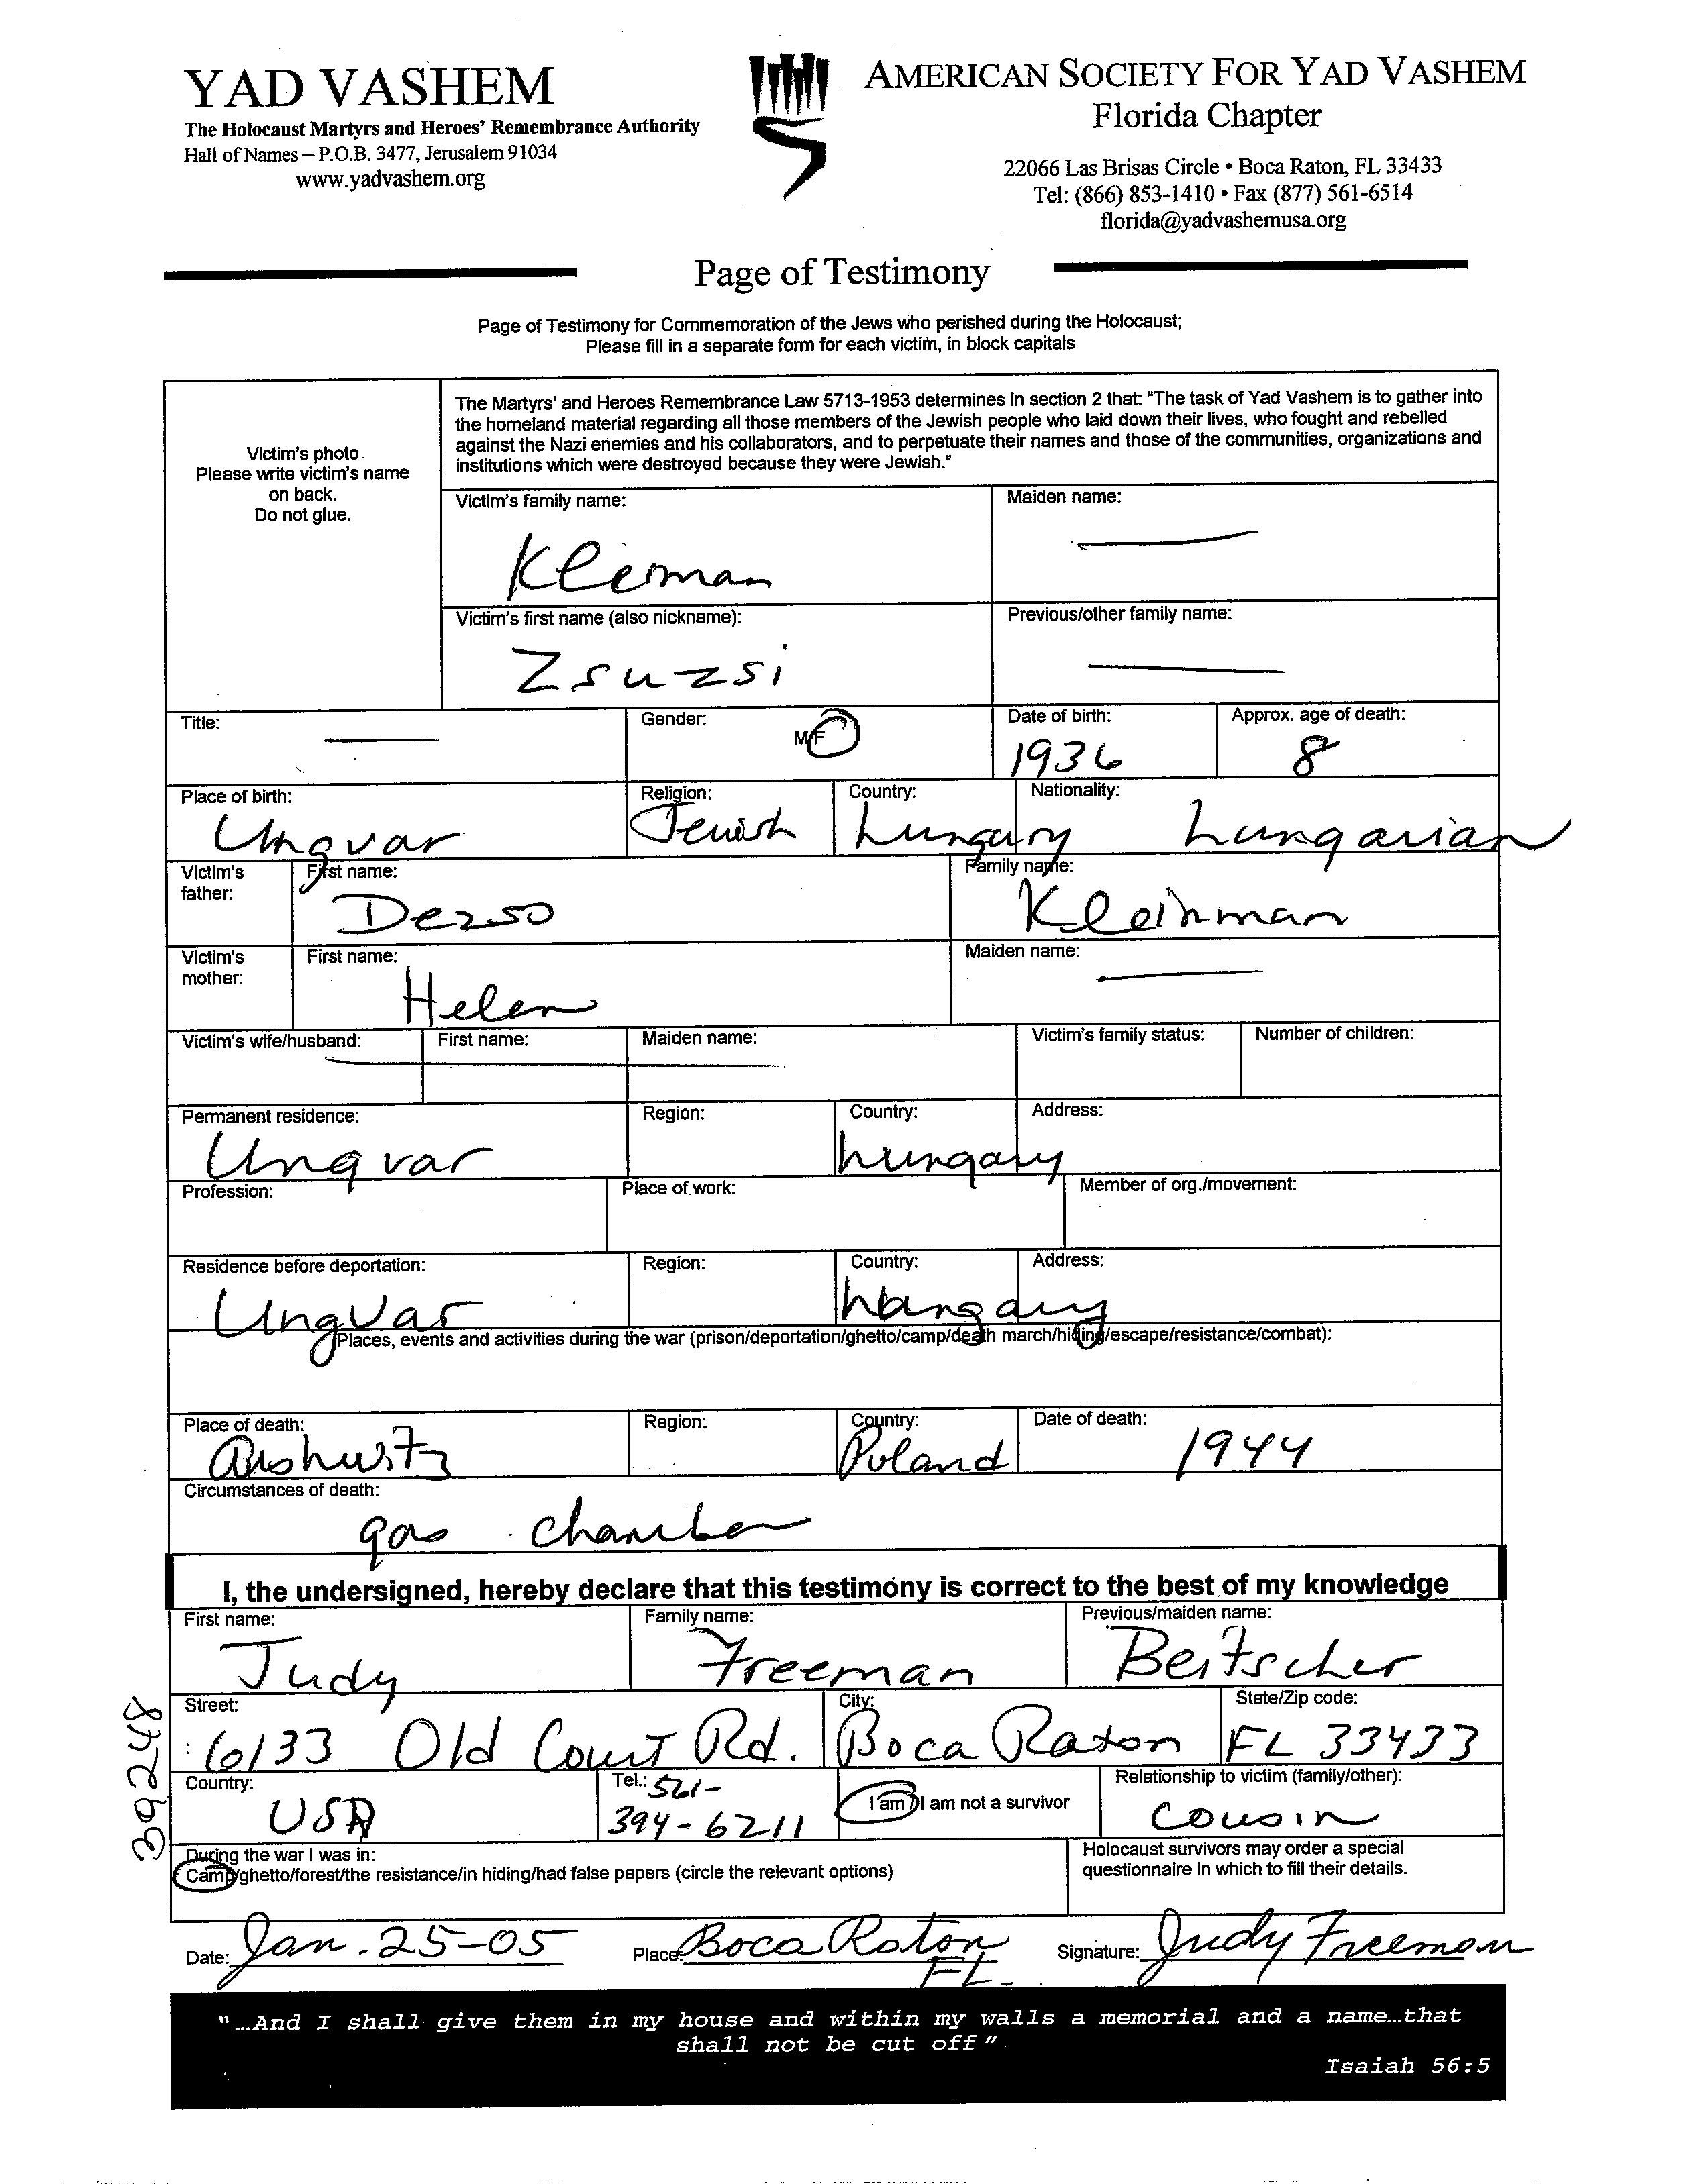 YAD VASHEM
The Holocaust Martyrs and Heroes' Remembrance Authority
Hall of Names – P.O.B. 3477, Jerusalem 91034
www.yadvashem.org
AMERICAN SOCIETY FOR YAD VASHEM
Florida Chapter
22066 Las Brisas Circle • Boca Raton, FL 33433
Tel: (866) 853-1410 • Fax (877) 561-6514
florida@yadvashemusa.org
Page of Testimony
Page of Testimony for Commemoration of the Jews who perished during the Holocaust;
Please fill in a separate form for each victim, in block capitals
Victim's photo
Please write victim's name
on back.
Do not glue.
The Martyrs' and Heroes Remembrance Law 5713-1953 determines in section 2 that: "The task of Yad Vashem is to gather into
the homeland material regarding all those members of the Jewish people who laid down their lives, who fought and rebelled
against the Nazi enemies and his collaborators, and to perpetuate their names and those of the communities, organizations and
institutions which were destroyed because they were Jewish."
Victim's family name: Maiden name:
Kleiman
Victim's first name (also nickname): Previous/other family name:
Zsuzsi
Title: Gender: M/F Date of birth: Approx. age of death:
1936 8
Place of birth: Religion: Country: Nationality:
Ungvar Jewish hungary hungarian
Victim's father: First name: Family name:
Dezso Kleinman
Victim's mother: First name: Maiden name:
Helen
Victim's wife/husband: First name: Maiden name: Victim's family status: Number of children:
Permanent residence: Region: Country: Address:
Ungvar hungary
Profession: Place of work: Member of org./movement:
Residence before deportation: Region: Country: Address:
Ungvar hungary
Places, events and activities during the war (prison/deportation/ghetto/camp/death march/hiding/escape/resistance/combat):
Place of death: Region: Country: Date of death:
Aushwitz Poland 1944
Circumstances of death:
gas chamber
I, the undersigned, hereby declare that this testimony is correct to the best of my knowledge
First name: Family name: Previous/maiden name:
Judy Freeman Beitscher
Street: City: State/Zip code:
6133 Old Court Rd. Boca Raton FL 33433
Country: Tel.: 561- I am / I am not a survivor Relationship to victim (family/other):
USA 394-6211 cousin
During the war I was in:
Camp/ghetto/forest/the resistance/in hiding/had false papers (circle the relevant options)
Holocaust survivors may order a special
questionnaire in which to fill their details.
Date: Jan. 25-05 Place: Boca Raton FL. Signature: Judy Freeman
392248
"...And I shall give them in my house and within my walls a memorial and a name...that
shall not be cut off".
Isaiah 56:5